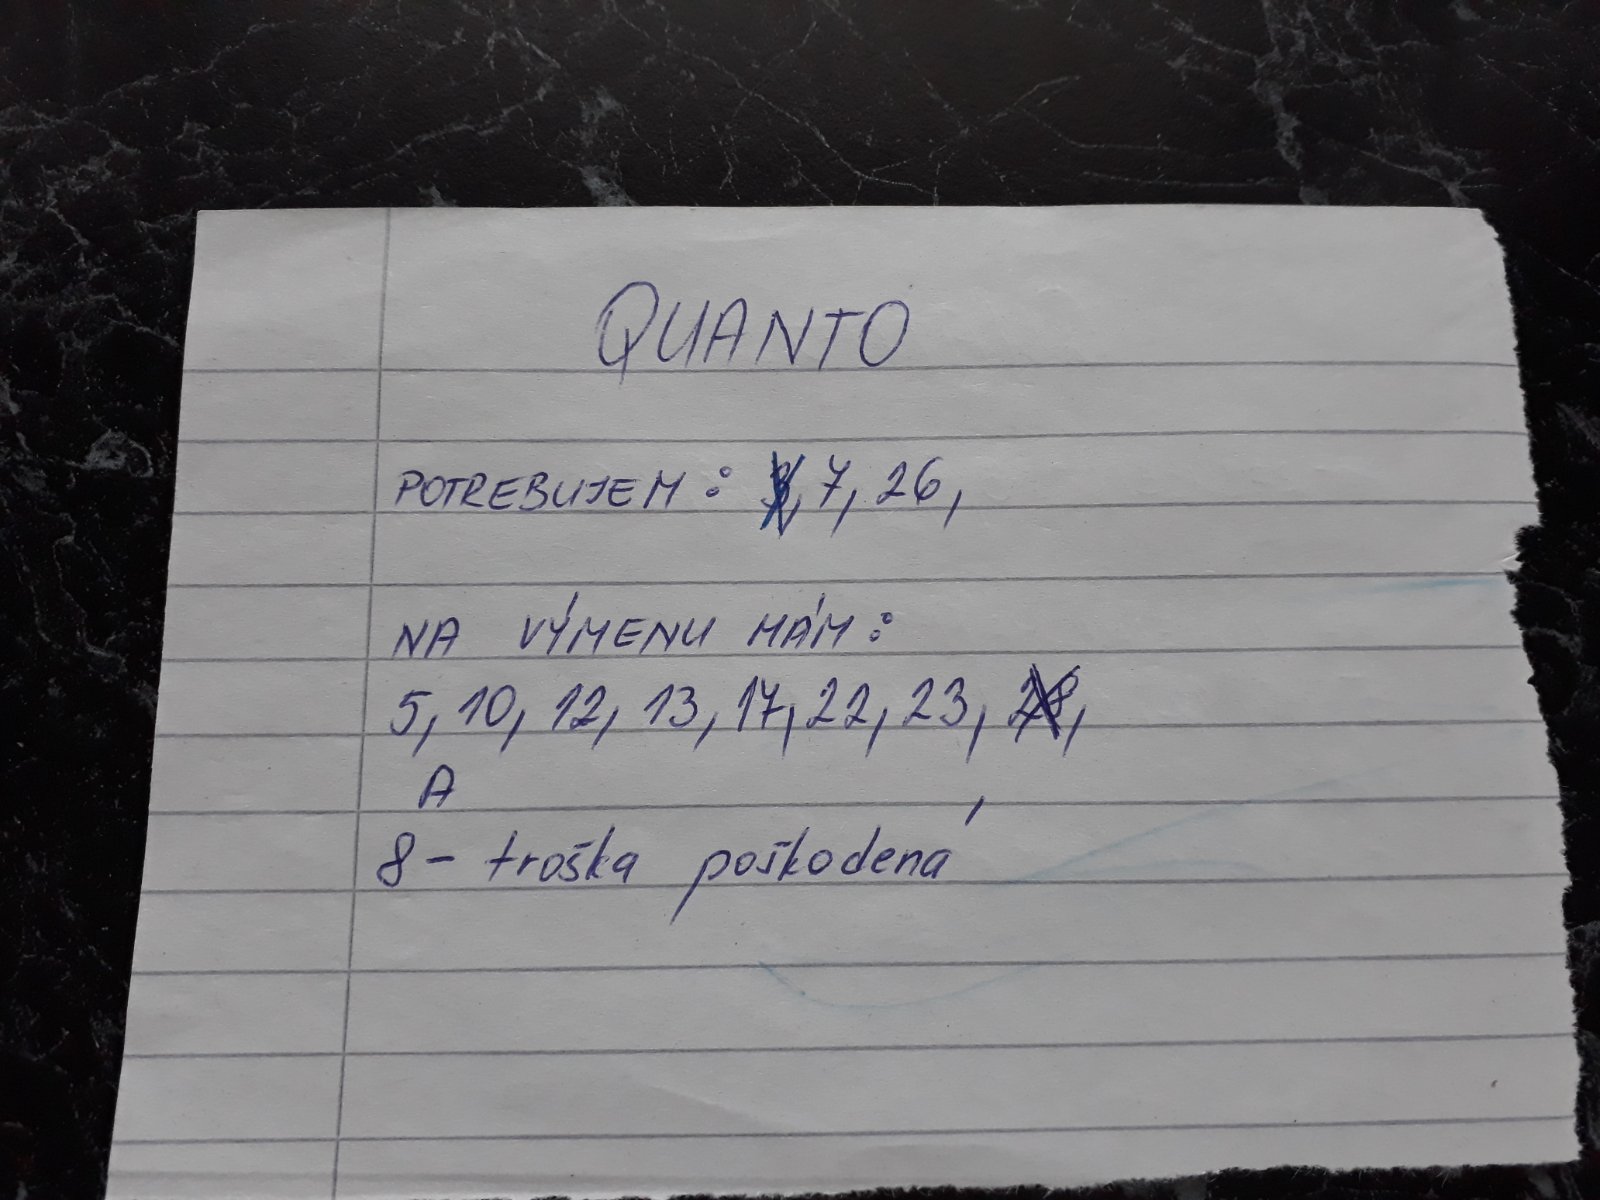 QUANTO
POTREBUJEM: 7, 26,
NA VÝMENU MÁM:
5, 10, 12, 13, 17, 22, 23, 28,
A
8 - troška poškodená